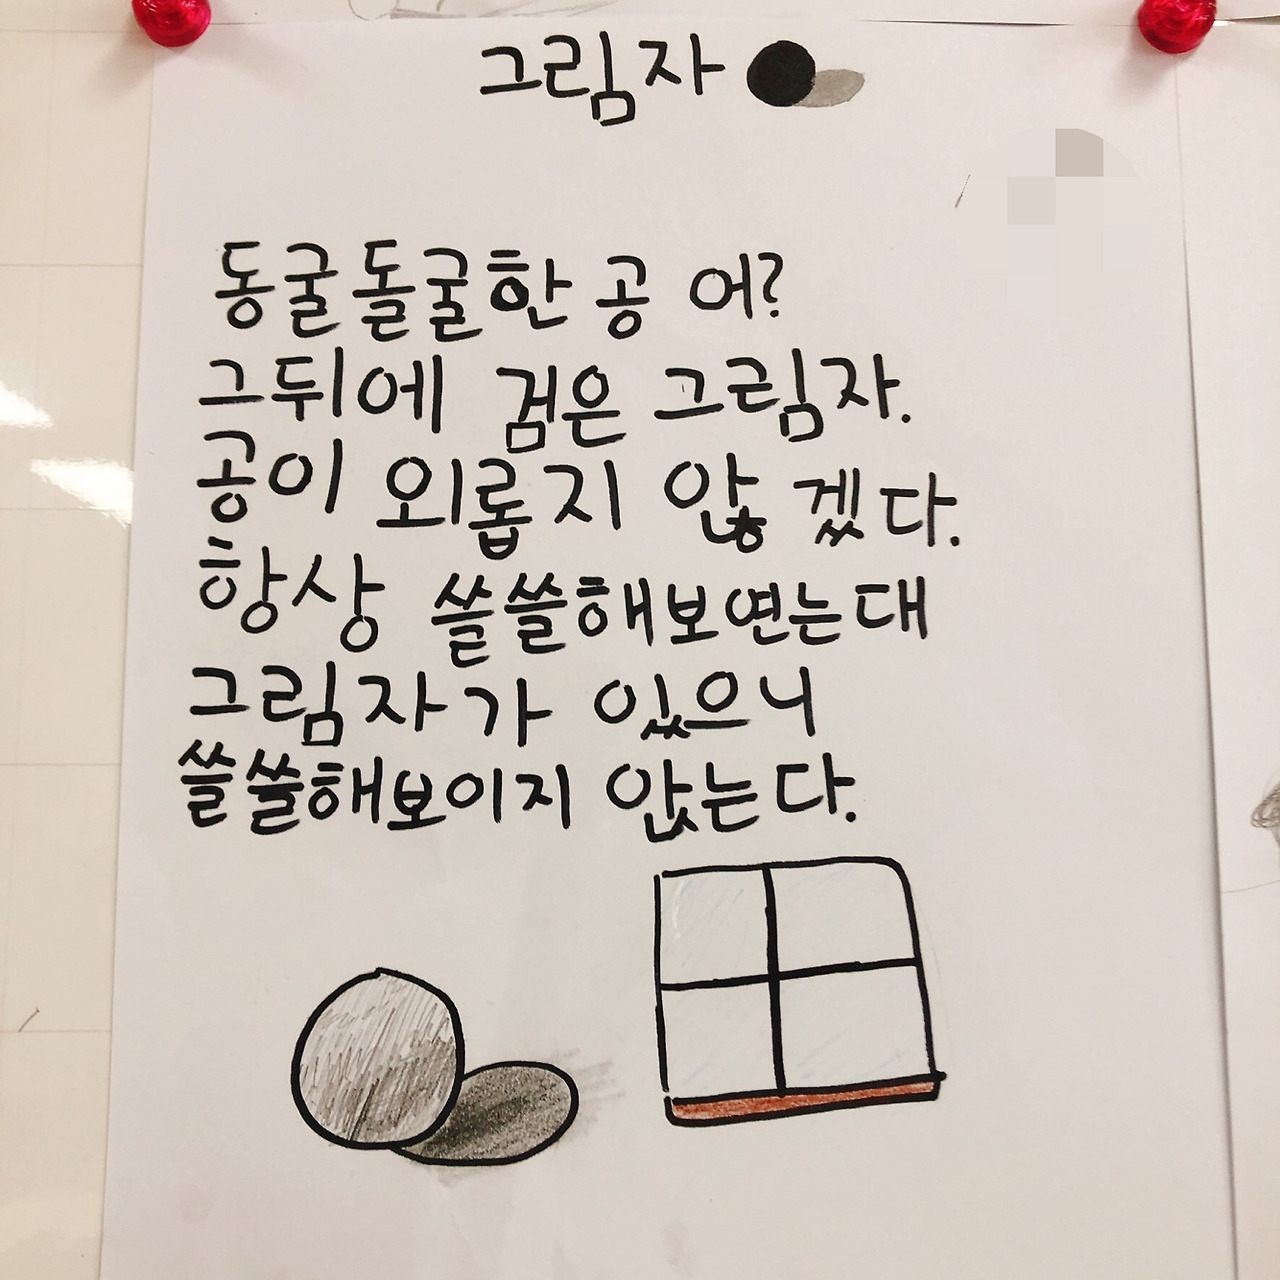 그림자
동굴돌굴한 공 어?
그뒤에 검은 그림자.
공이 외롭지 않겠다.
항상 쓸쓸해보연는대
그림자가 있으니
쓸쓸해보이지 안는다.